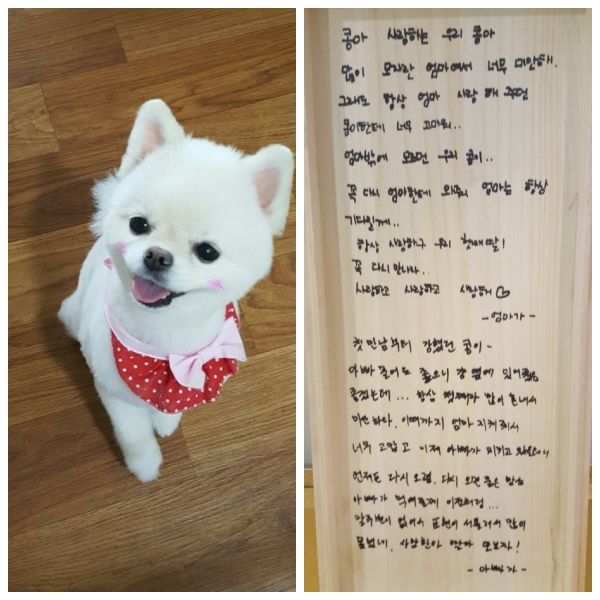 콩아 사랑하는 우리 콩아
많이 모자란 엄마여서 너무 미안해.
그래도 항상 엄마 사랑해 주던
콩이한테 너무 고마워..
엄마밖에 모르던 우리 콩이..
꼭 다시 엄마한테 와줘. 엄마는 항상
기다릴게..
항상 사랑하구 우리 첫째딸!
꼭 다시 만나자..
사랑하고 사랑하고 사랑해♡
-엄마가-
첫만남부터 강했던 콩이~
아빠 물어도 좋으니 걍 옆에 있어줬음
좋겠는데... 항상 많이 혼내서
미안하다. 이때까지 엄마 지켜줘서
너무 고맙고 이제 아빠가 지키고
언제든 다시 오렴. 다시 오면 좋은
아빠가 이전처럼...
말주변이 없어서 표현이 서툴러서 많이
못했네. 사랑한다 딸아 또보자!
-아빠가-